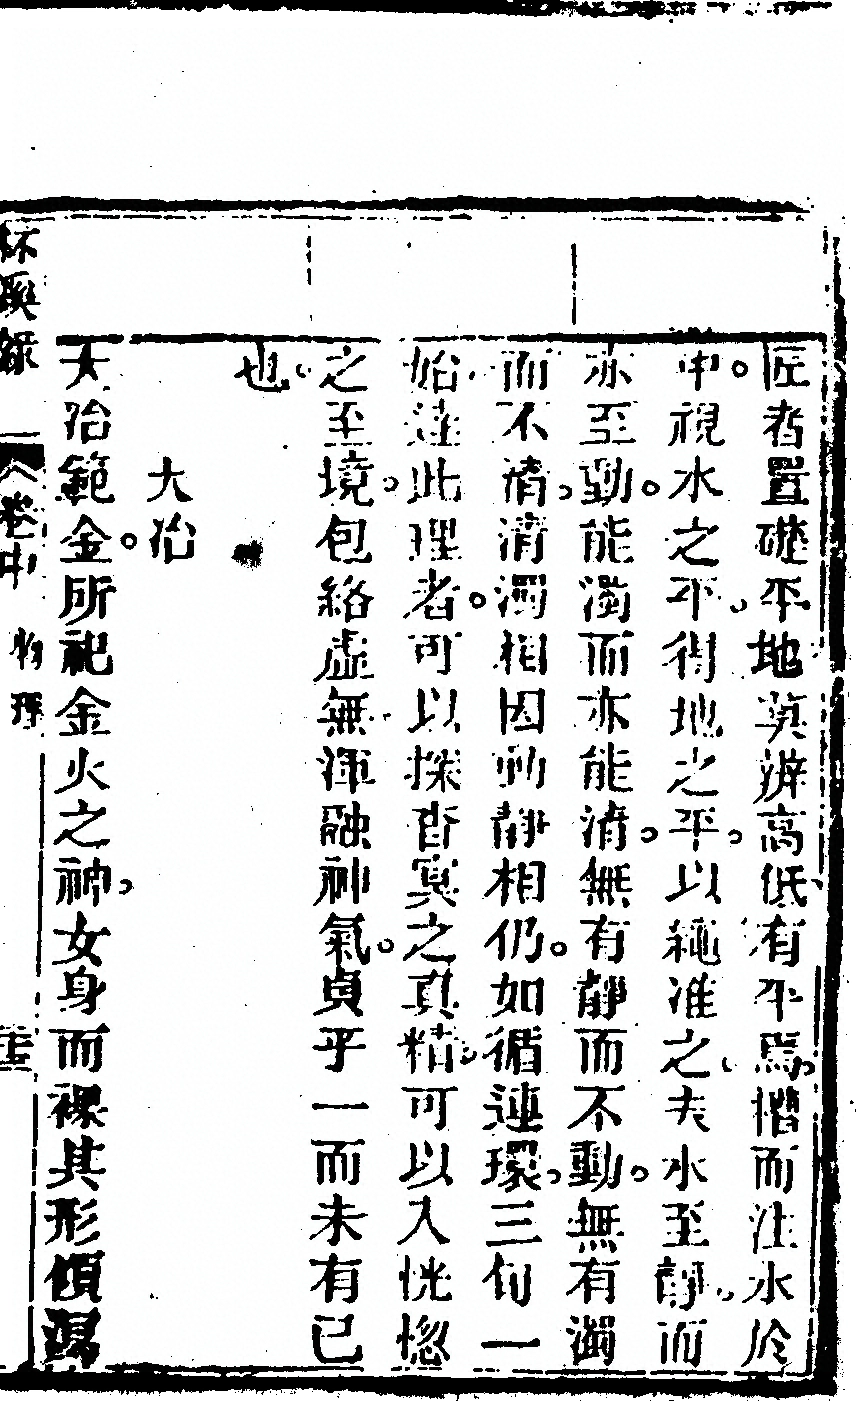 匠者置礎平地莫辨高低。有平焉。揩而注水於
中。視水之平。得地之平。以繩准之。夫水至靜。而
亦至動。能濁而亦能清。無有靜而不動。無有濁
而不清。清濁相因動靜相仍。如循連環。三旬一
始。達此理者。可以探杳冥之真精。可以入恍惚
之至境。包絡虛無渾融神氣。貞乎一而未有已
也。
大冶
大冶範金。所祀金火之神。女身而裸其形傾
溪錄 卷中 物理